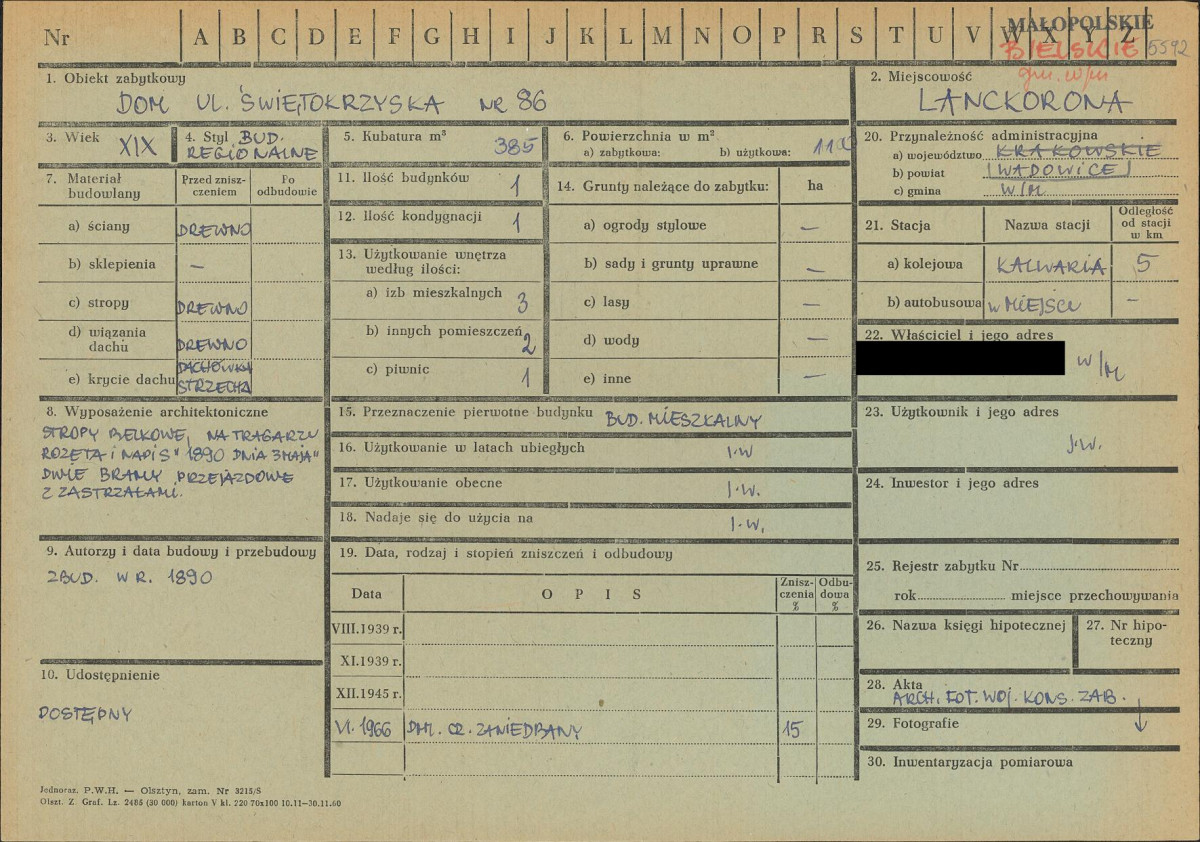 Nr A B C D E F G H I J K L M N O P R S T U V W X Y Z
MAŁOPOLSKIE
BIELSKIE 5592
gm. w/m
1. Obiekt zabytkowy
DOM UL. ŚWIĘTOKRZYSKA NR 86
2. Miejscowość
LANCKORONA
3. Wiek XIX
4. Styl BUD.
REGIONALNE
5. Kubatura m³ 385
6. Powierzchnia w m²
a) zabytkowa: b) użytkowa: 110
20. Przynależność administracyjna
a) województwo KRAKOWSKIE
b) powiat WADOWICE
c) gmina W/M
7. Materiał budowlany
Przed zniszczeniem
Po odbudowie
a) ściany DREWNO
b) sklepienia —
c) stropy DREWNO
d) wiązania dachu DREWNO
e) krycie dachu DACHÓWKA
STRZECHA
11. Ilość budynków 1
12. Ilość kondygnacji 1
13. Użytkowanie wnętrza
według ilości:
a) izb mieszkalnych 3
b) innych pomieszczeń 2
c) piwnic 1
14. Grunty należące do zabytku: ha
a) ogrody stylowe —
b) sady i grunty uprawne —
c) lasy —
d) wody —
e) inne —
21. Stacja Nazwa stacji Odległość od stacji w km
a) kolejowa KALWARIA 5
b) autobusowa w MIEJSCU —
22. Właściciel i jego adres
w/M
8. Wyposażenie architektoniczne
STROPY BELKOWE, NA TRAGARZU
ROZETA I NAPIS "1890 DNIA 3 MAJA"
DWIE BRAMY PRZEJAZDOWE
Z ZASTRZAŁAMI.
15. Przeznaczenie pierwotne budynku BUD. MIESZKALNY
16. Użytkowanie w latach ubiegłych J.W
17. Użytkowanie obecne J.W.
18. Nadaje się do użycia na J.W.
23. Użytkownik i jego adres
J.W.
24. Inwestor i jego adres
9. Autorzy i data budowy i przebudowy
ZBUD. W R. 1890
19. Data, rodzaj i stopień zniszczeń i odbudowy
Data OPIS Zniszczenia % Odbudowa %
VIII.1939 r.
XI.1939 r.
XII.1945 r.
VI. 1966 ZANIEDBANY 15
25. Rejestr zabytku Nr
rok miejsce przechowywania
26. Nazwa księgi hipotecznej
27. Nr hipoteczny
10. Udostępnienie
DOSTĘPNY
28. Akta
ARCH. FOT. WOJ. KONS. ZAB.
29. Fotografie
30. Inwentaryzacja pomiarowa
Jednoraz. P.W.H. — Olsztyn, zam. Nr 3215/S
Olszt. Z. Graf. Lz. 2485 (30 000) karton V kl. 220 70x100 10.11—30.11.60